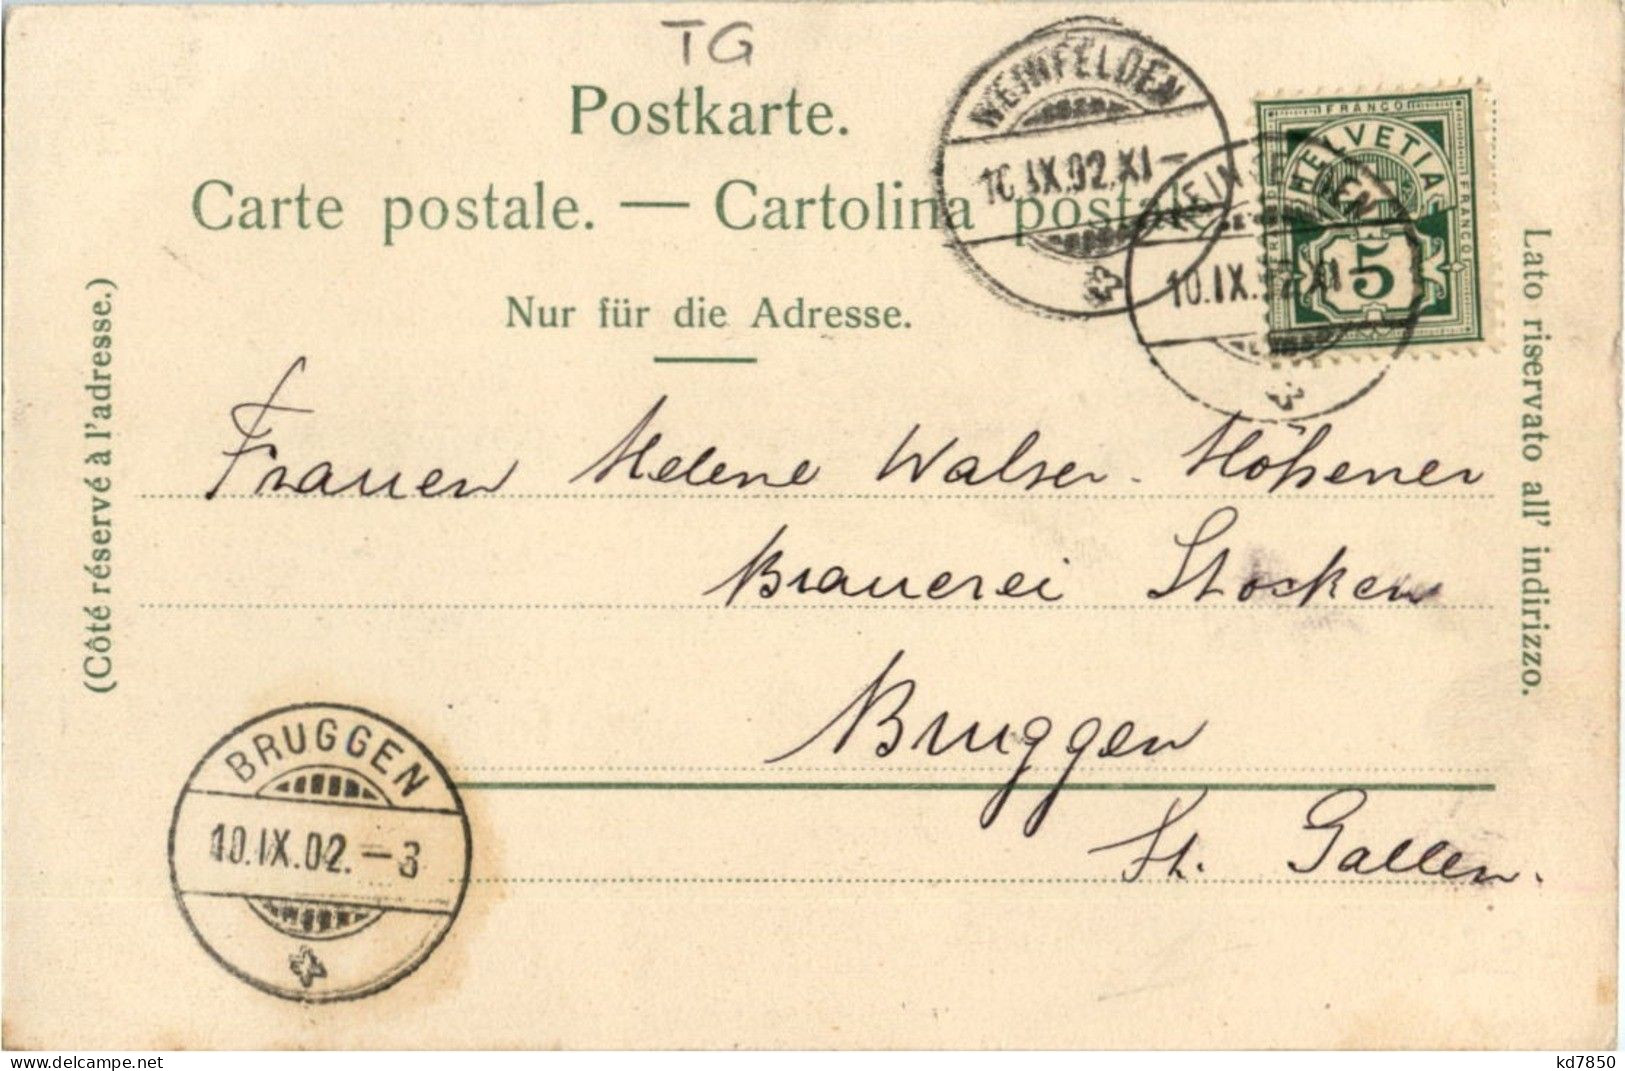 TG
Postkarte.
Carte postale. — Cartolina postale
Nur für die Adresse.
WEINFELDEN
10.IX.02.XI—
WEINFELDEN
10.IX.02.XI
FRANCO
HELVETIA
FRANCO
5
(Côté réservé à l'adresse.)
Lato riservato all' indirizzo.
Frauen Helene Walser-Höhener
Brauerei Stocken
Bruggen
St. Gallen.
BRUGGEN
10.IX.02.—3
kd7850